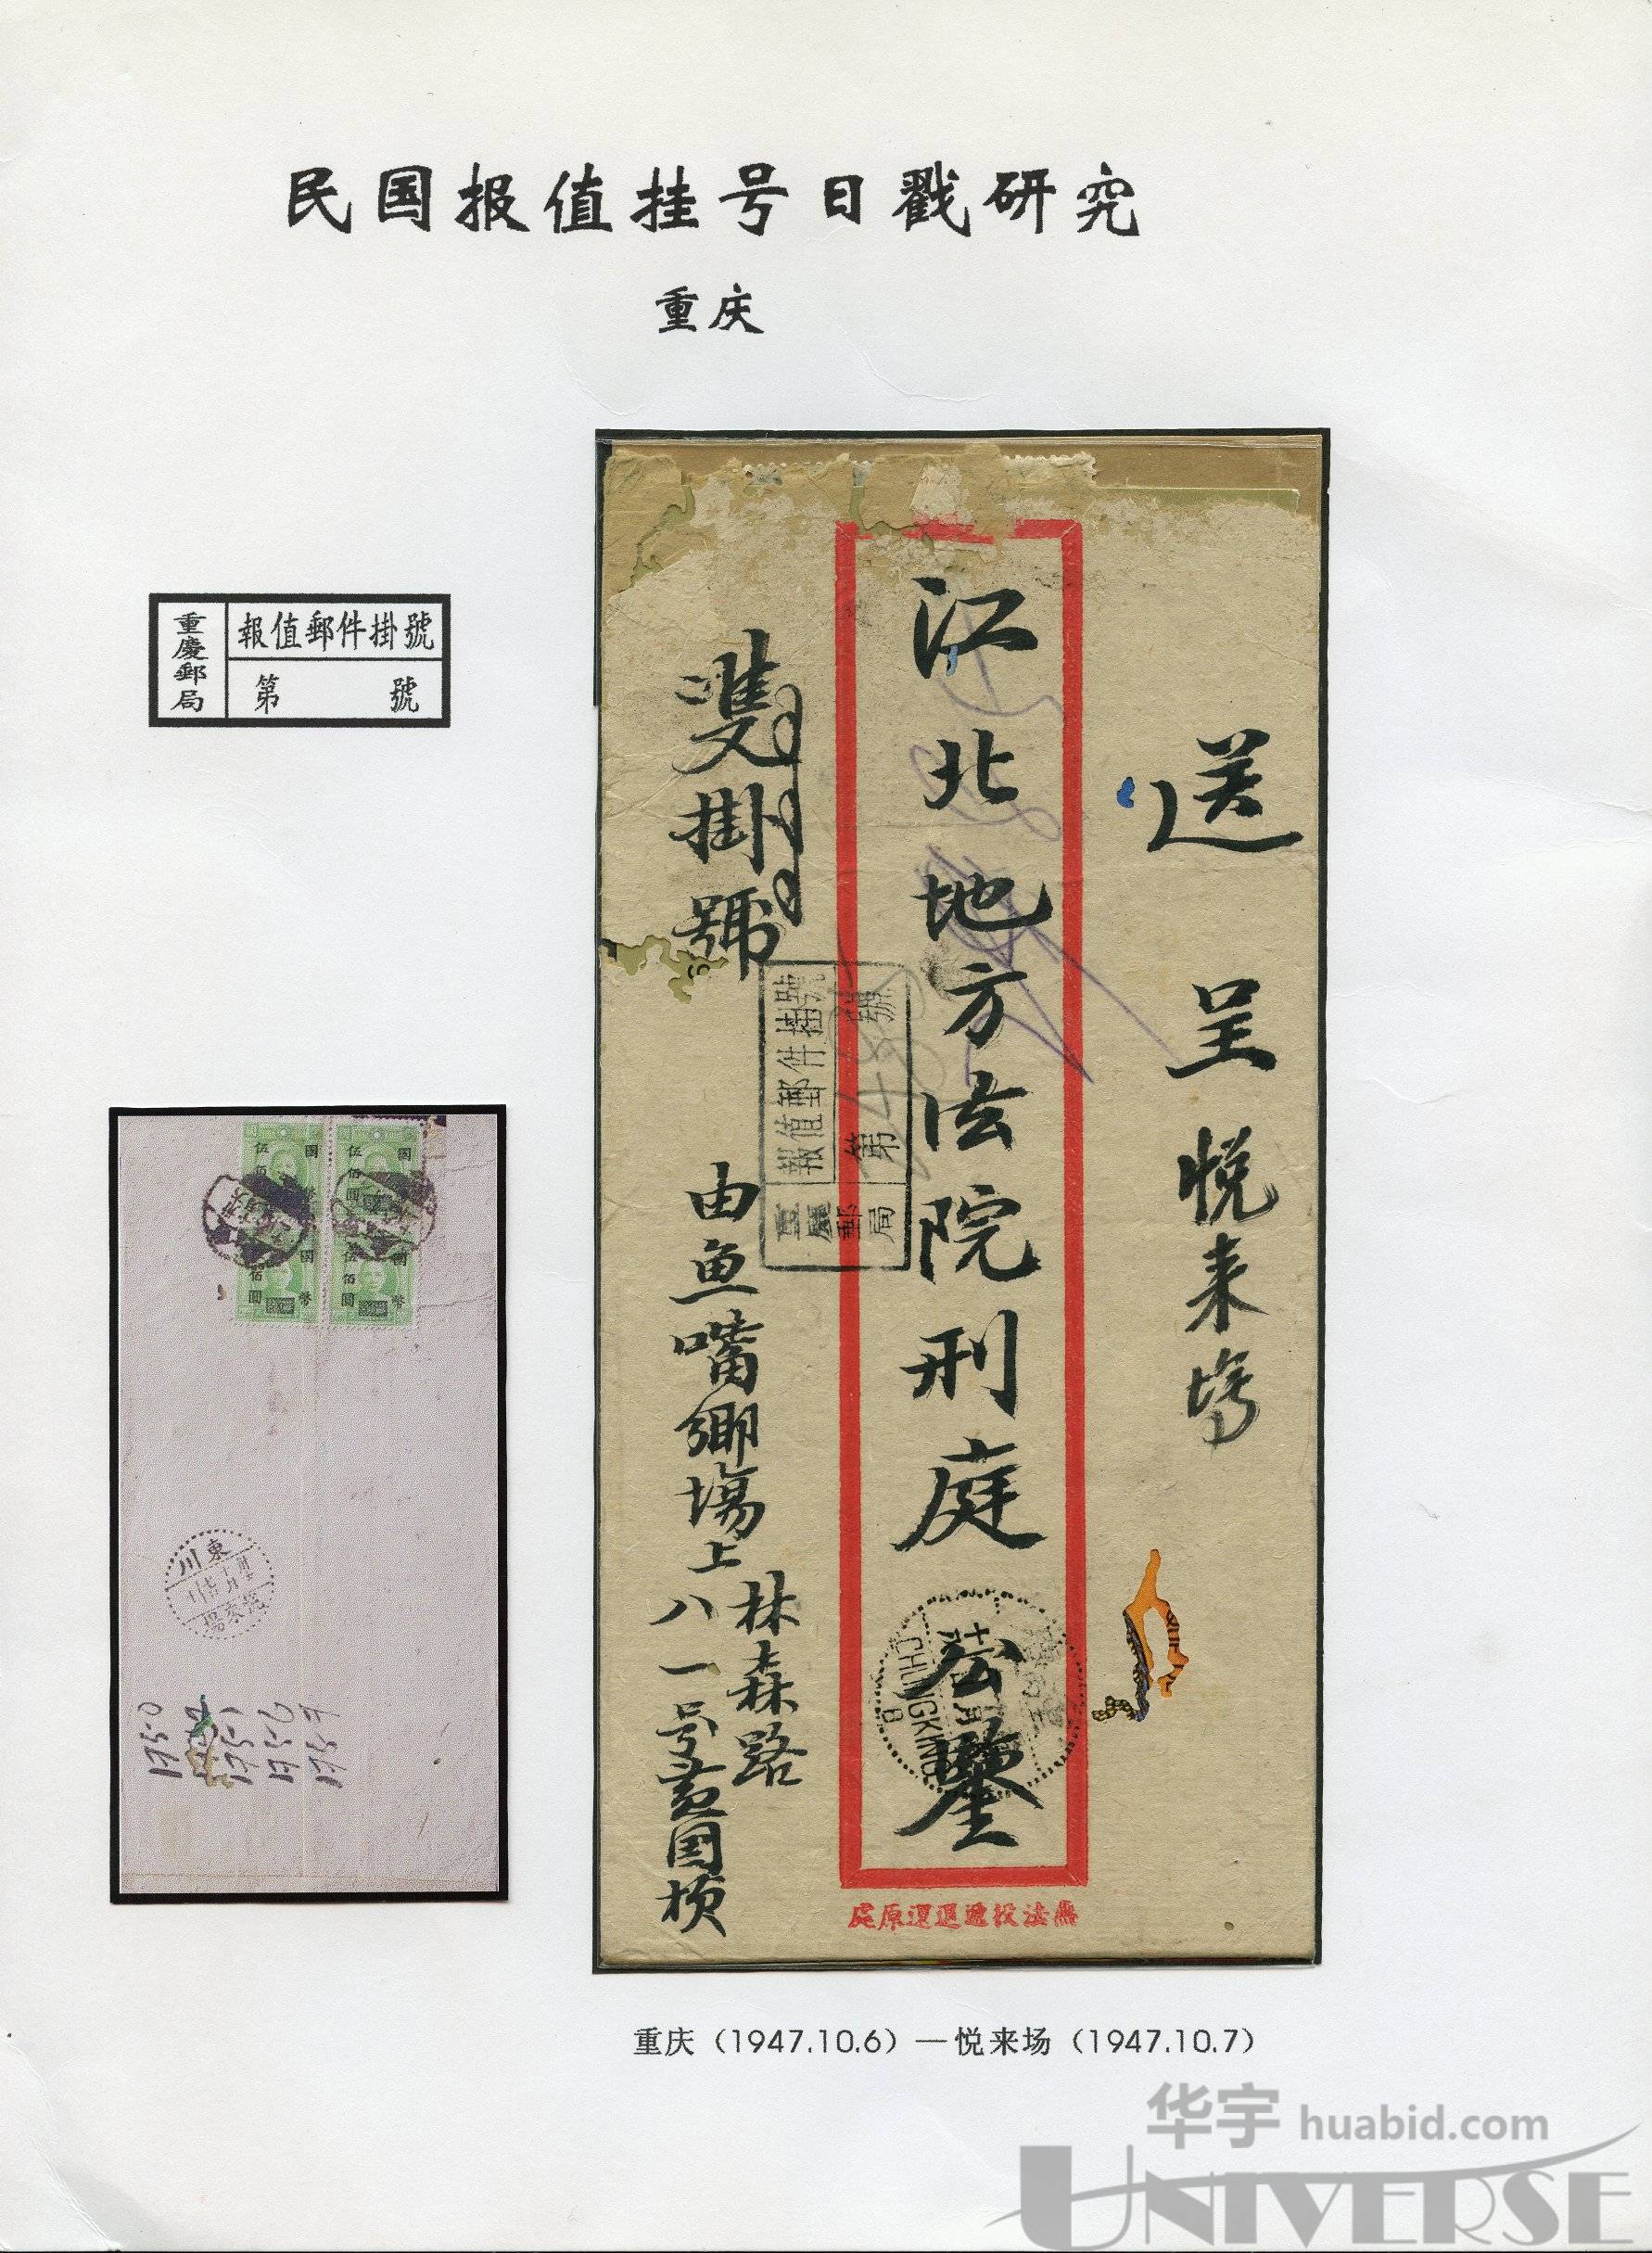 民国报值挂号日戳研究
重庆
重慶郵局
報值郵件掛號
第 號
送 呈 悦来場
江北地方法院刑庭 公鑒
雙掛號
由魚嘴鄉場上林森路
八一号
重慶郵局
報值郵件掛號
第 號
CHUNGKING
8
無法投遞退還原處
國幣
伍佰圓
國幣
伍佰圓
東川
悅來場
1750
1751
重庆（1947.10.6）—悦来场（1947.10.7）
华宇 huabid.com
UNIVERSE